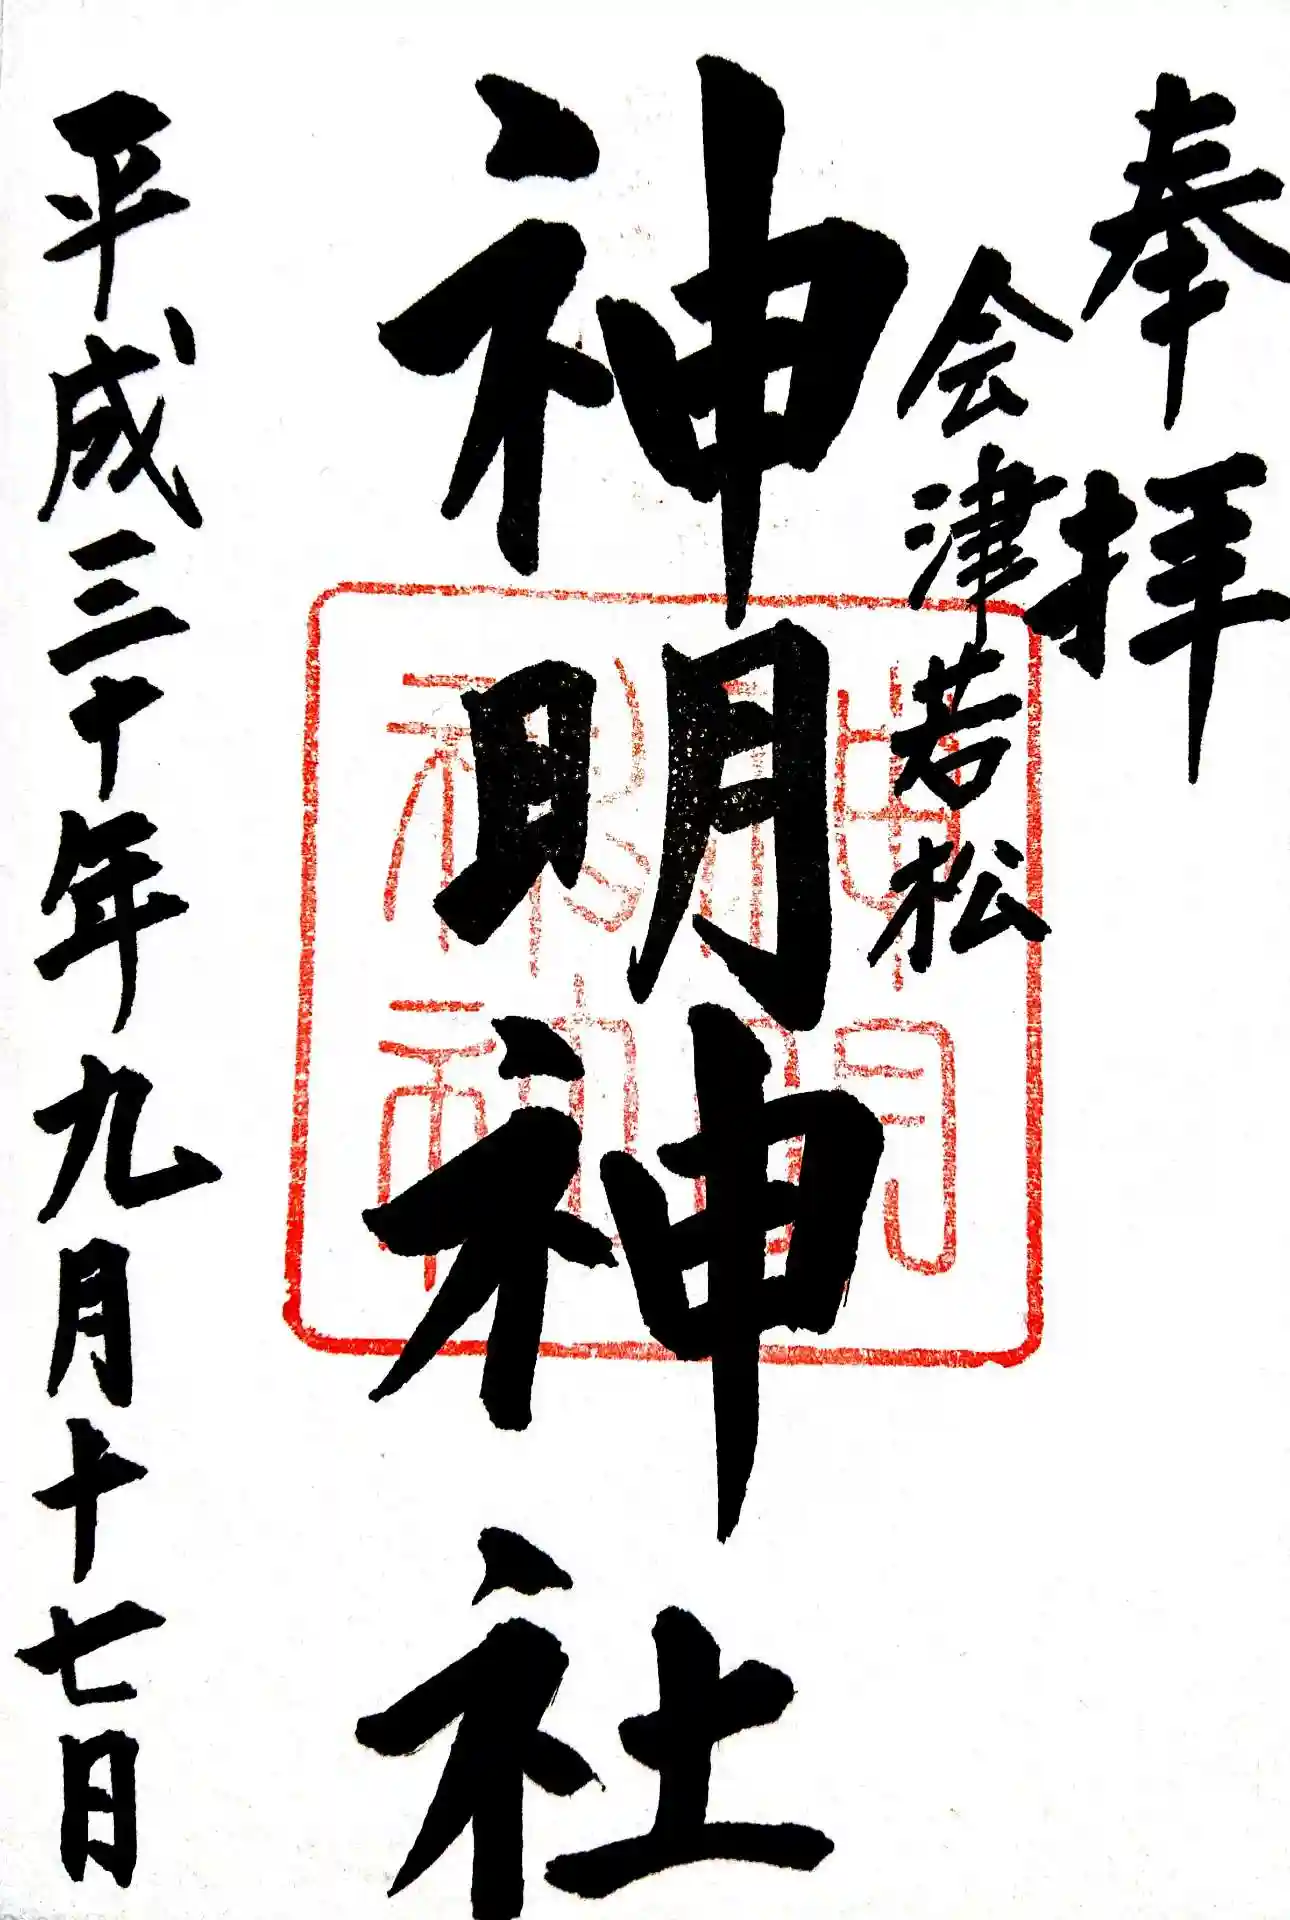 奉拝
会津若松
神明神社
平成三十年九月十七日